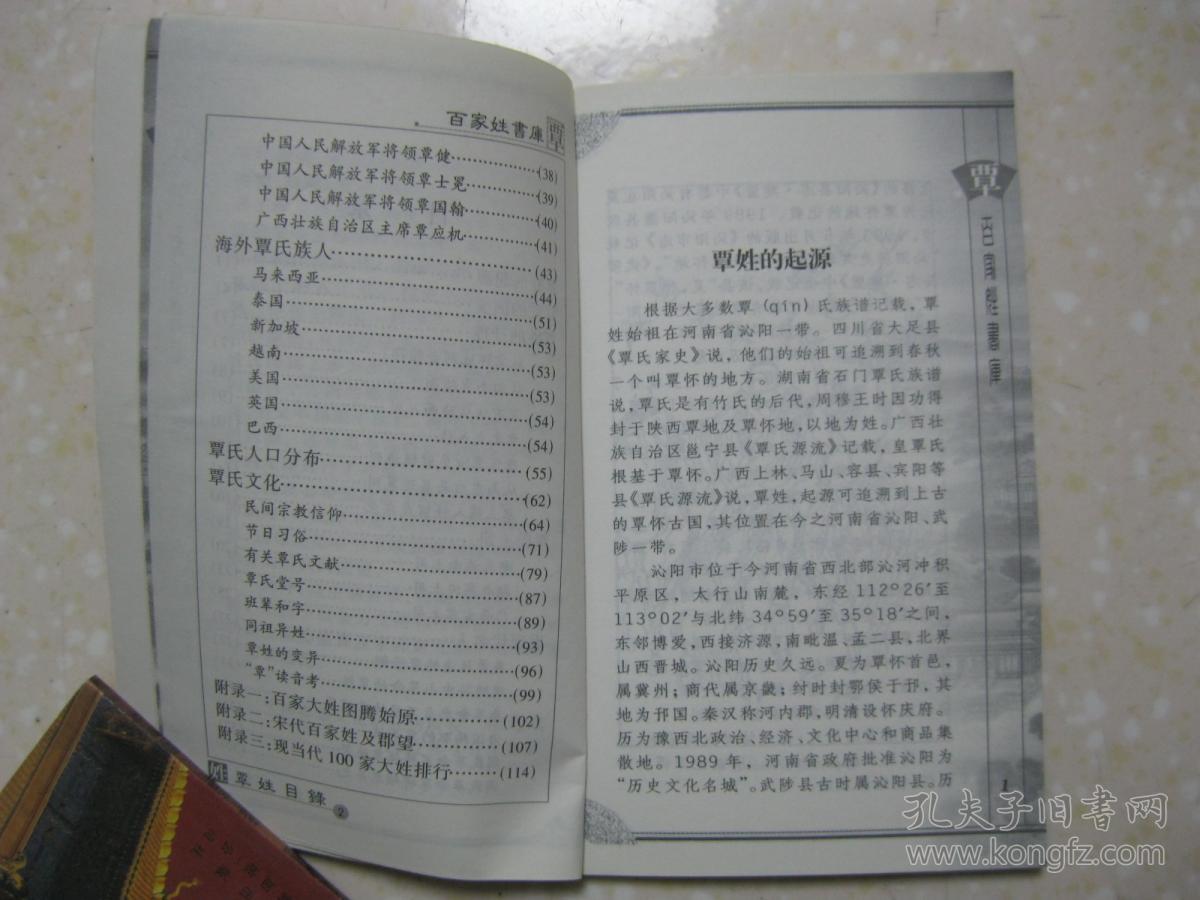 百家姓書庫
覃
中国人民解放军将领覃健……………(38)
中国人民解放军将领覃士冕…………(39)
中国人民解放军将领覃国翰…………(40)
广西壮族自治区主席覃应机…………(41)
海外覃氏族人……………………………(43)
马来西亚………………………………(44)
泰国……………………………………(51)
新加坡…………………………………(53)
越南……………………………………(53)
美国……………………………………(53)
英国……………………………………(54)
巴西……………………………………(54)
覃氏人口分布……………………………(55)
覃氏文化…………………………………(62)
民间宗教信仰…………………………(64)
节日习俗………………………………(71)
有关覃氏文献…………………………(79)
覃氏堂号………………………………(87)
班辈和字………………………………(89)
同祖异姓………………………………(93)
覃姓的变异……………………………(96)
“覃”读音考……………………………(99)
附录一:百家大姓图腾始原……………(102)
附录二:宋代百家姓及郡望……………(107)
附录三:现当代100家大姓排行………(114)
姓 覃姓目錄 2
覃
百家姓書庫
覃姓的起源
根据大多数覃(qín)氏族谱记载,覃
姓始祖在河南省沁阳一带。四川省大足县
《覃氏家史》说,他们的始祖可追溯到春秋
一个叫覃怀的地方。湖南省石门覃氏族谱
说,覃氏是有竹氏的后代,周穆王时因功得
封于陕西覃地及覃怀地,以地为姓。广西壮
族自治区邕宁县《覃氏源流》记载,皇覃氏
根基于覃怀。广西上林、马山、容县、宾阳等
县《覃氏源流》说,覃姓,起源可追溯到上古
的覃怀古国,其位置在今之河南省沁阳、武
陟一带。
沁阳市位于今河南省西北部沁河冲积
平原区,太行山南麓,东经112°26′至
113°02′与北纬34°59′至35°18′之间,
东邻博爱,西接济源,南毗温、孟二县,北界
山西晋城。沁阳历史久远。夏为覃怀首邑,
属冀州;商代属京畿;纣时封鄂侯于邘,其
地为邘国。秦汉称河内郡,明清设怀庆府。
历为豫西北政治、经济、文化中心和商品集
散地。1989年,河南省政府批准沁阳为
“历史文化名城”。武陟县古时属沁阳县。历
1
孔夫子旧书网
www.kongfz.com